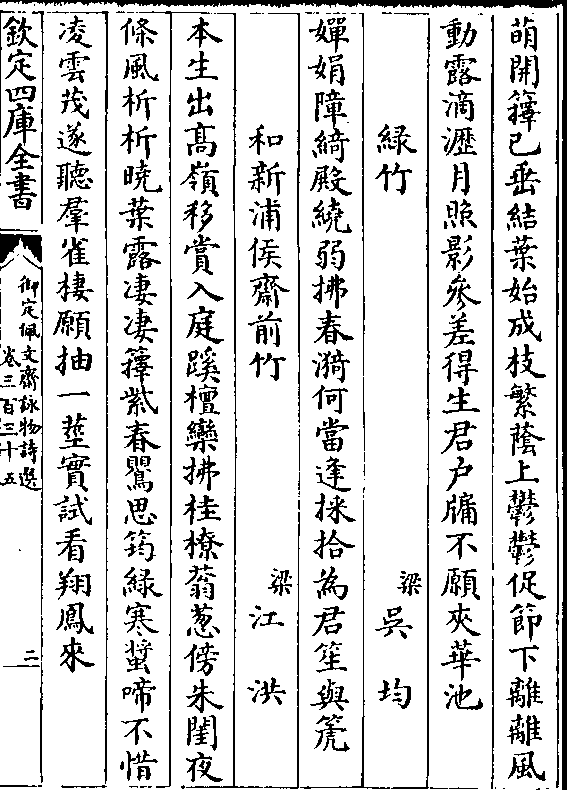 萌開籜已垂結葉始成枝繁蔭上鬱鬱促節下離離風
動露滴瀝月照影參差得生君户牖不願夾華池
緑竹
梁吳均
嬋娟障綺殿繞弱拂春漪何當逢採拾為君笙與箎
和新浦侯齋前竹
梁江洪
本生出髙嶺移賞入庭蹊檀欒拂桂橑蓊葱傍朱閨夜
條風析析曉葉露凄凄籜紫春鸎思筠緑寒蛩啼不惜
凌雲茂遂聽羣雀棲願抽一莖實試看翔鳳來
欽定四庫全書
御定佩文齋詠物詩選
卷三百三十五
二